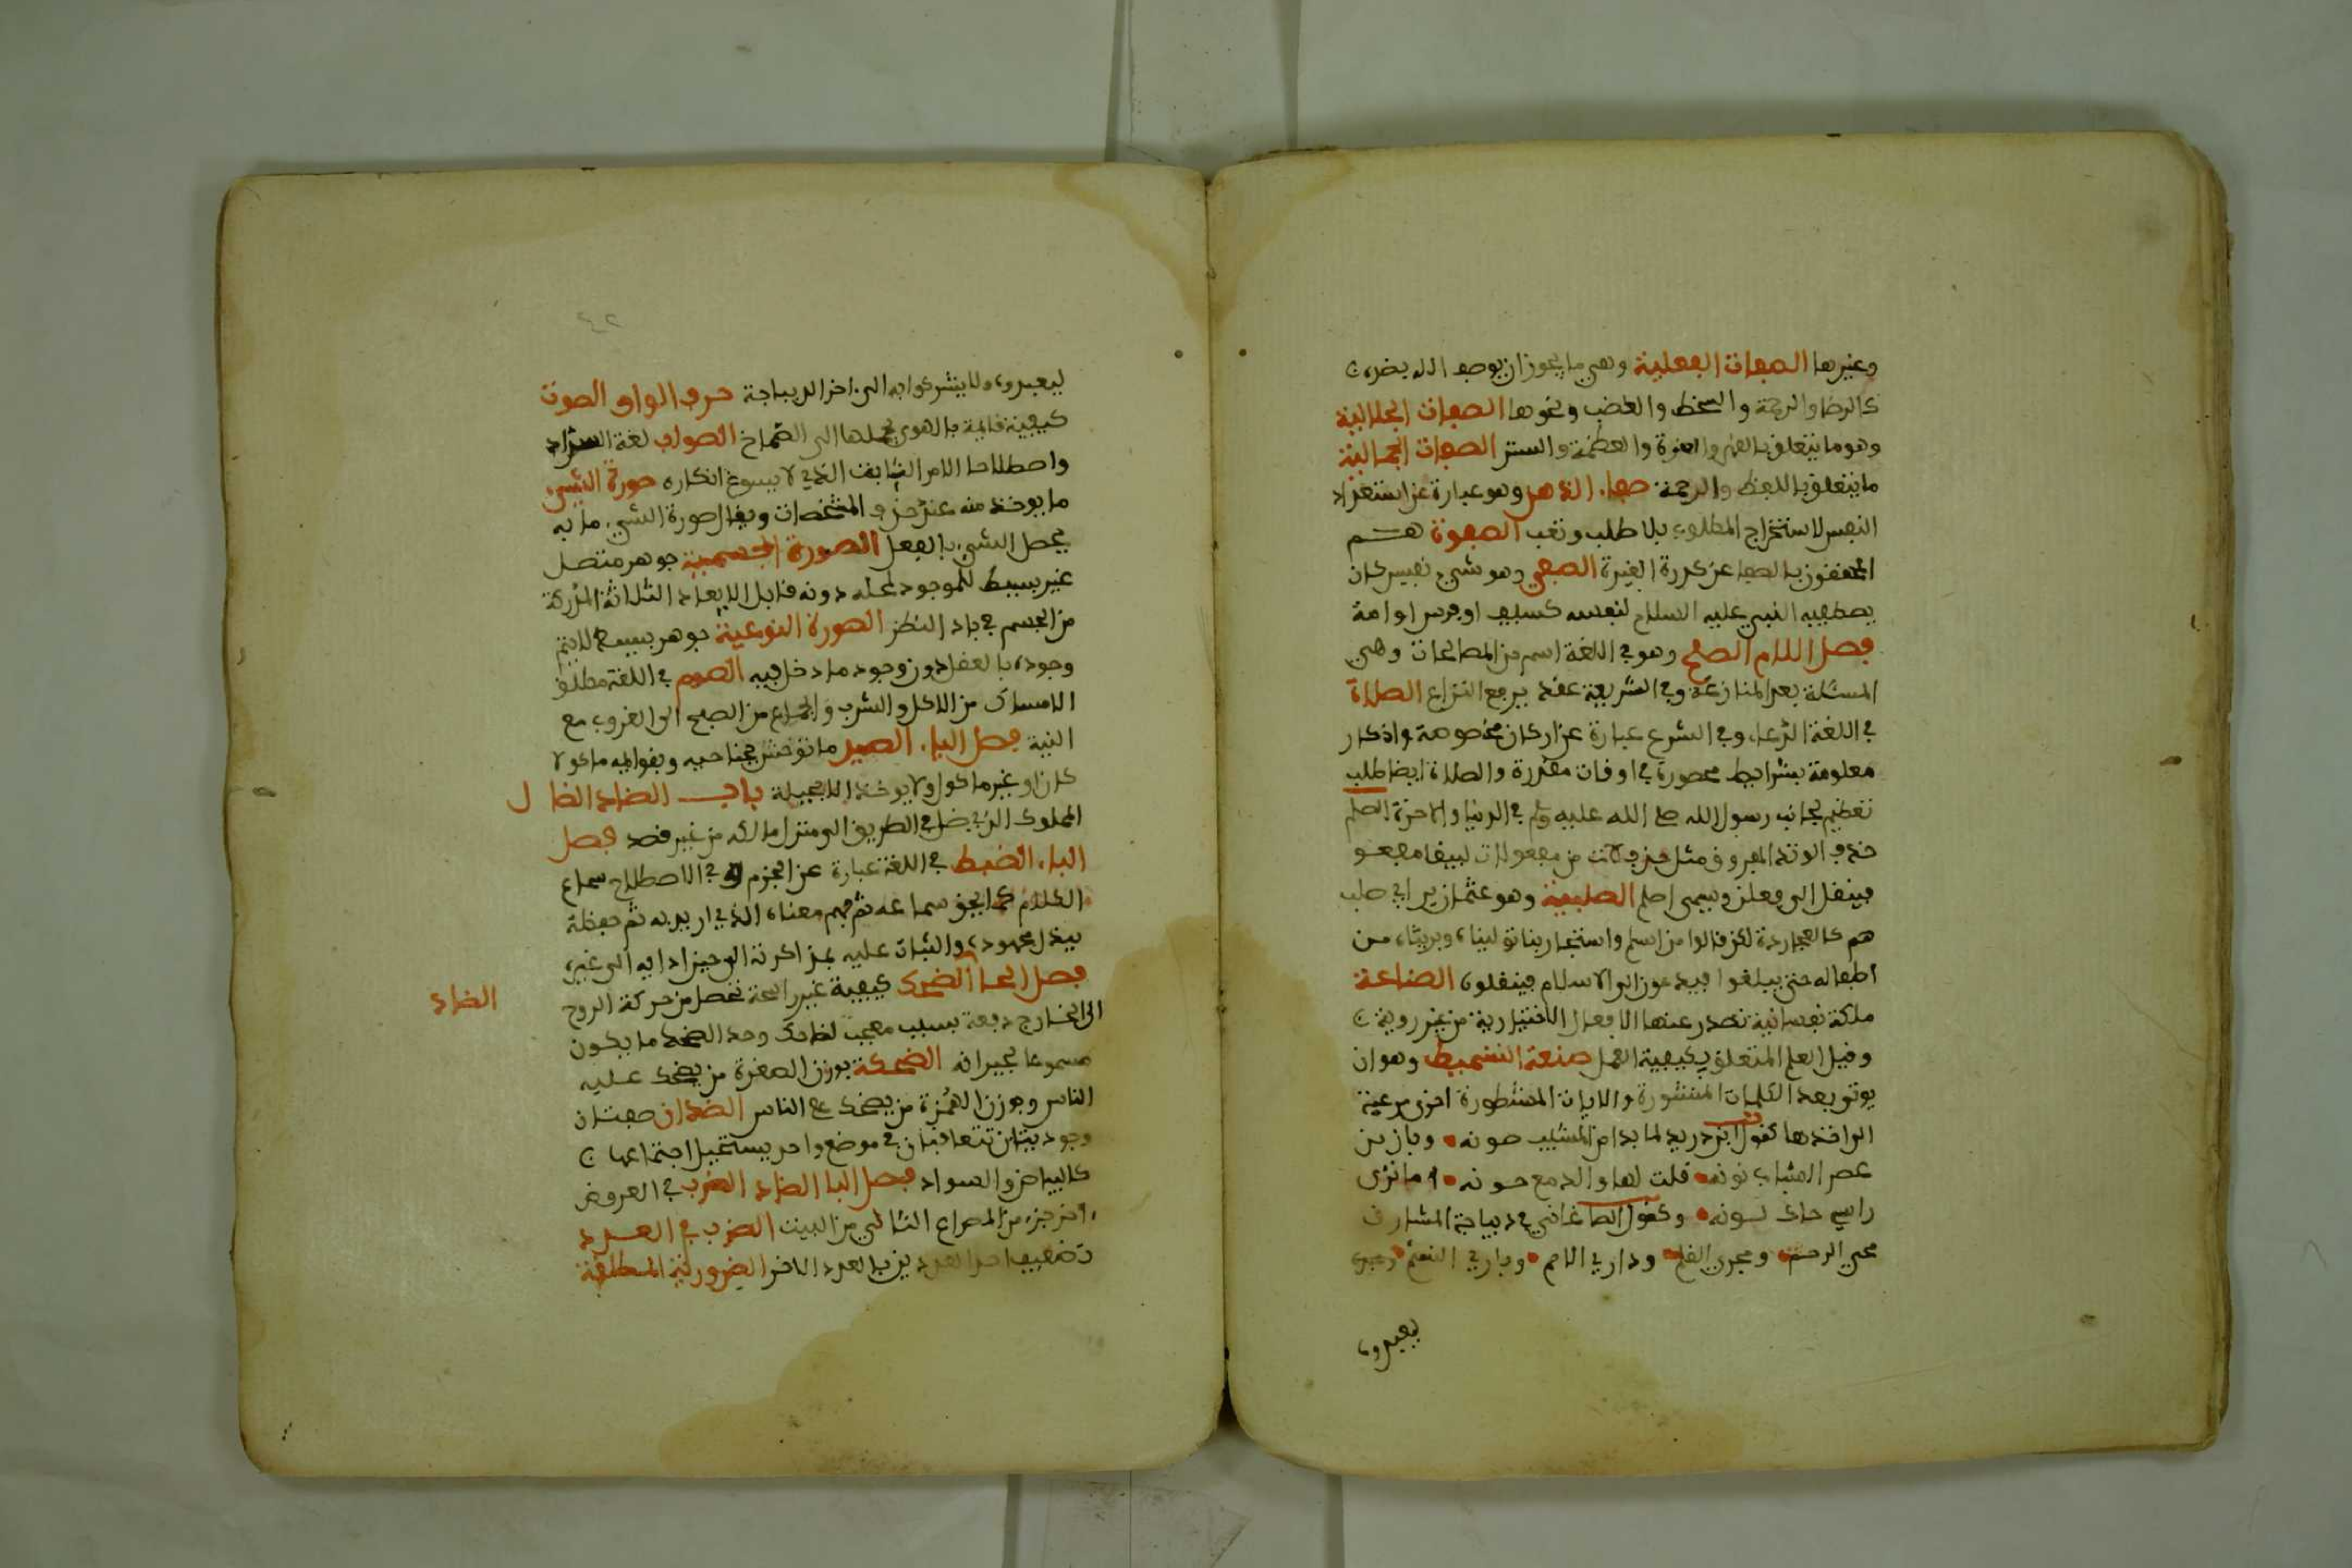 وغيرها الصفات الفعلية وهي ما يجوز ان يوصف الله بضده
كالرضا والرحمة والسخط والغضب ونحوها الصفات الجلالية
وهو ما يتعلق بالقهر والعزة والعظمة والستر الصفات الجمالية
ما يتعلق باللطف والرحمة صفاء الذهن وهو عبارة عن استعداد
النفس لاستخراج المطلوب بلا طلب وتعب الصفوة هم
المتصفون بالصفا عن كدرة الغيرة الصفي وهو شيء نفيس كان
يصطفيه النبي عليه السلام لنفسه كسيف او فرس او امة
فصل اللام الصلح وهو في اللغة اسم من المصالحات وهي
المسئلة بعد المنازعة وفي الشريعة عقد يرفع النزاع الصلاة
في اللغة الدعاء وفي الشرع عبارة عن اركان مخصوصة واذكار
معلومة بشرايط محصورة في اوقات مقدرة والصلاة ايضا طلب
تعظيم لجانب رسول الله صلى الله عليه وسلم في الدنيا والاخرة الصلم
حذف الوتد المفروق مثل حذف لات من مفعولات ليبقا مفعو
فينقل الى فعلن ويسمى اصلم الصلتية وهو عثمان بن ابي صلت
هم كالعجاردة لكن قالوا من اسلم واستجار بنا توليناه وبرئناه من
اطفاله حتى يبلغوا فيدعون الى الاسلام فيقبلون الصناعة
ملكة نفسانية تصدر عنها الافعال الاختيارية من غير روية
وقيل العلم المتعلق بكيفية العمل صنعة التسميط وهو ان
يوتى بعد الكلمات المنثورة والابيات المشطورة اخرى مرعية
الى اخذها كقول ابن دريد لما بدا من المشيب صونه وبان من
عصر الشباب بونه قلت لها والدمع جونه اما ترى
راسي حاك لونه وكقول الصاغاني في ديباجة المشارق
محي الرمم ومجري القلم وداري الامم وباري النسم
يعبدوه
٤٢
ليعبدوه ولا يشركوا به الى اخر الديباجة حرف الواو الصوت
كيفية قايمة بالهوى يحملها الى الصماخ الصواب لغة السداد
واصطلاحا الامر الثابت الذي لا يسوغ انكاره صورة الشيء
ما يوخذ منه عند حذف المشخصات ويقال صورة الشيء ما به
يحصل الشيء بالفعل الصورة الجسمية جوهر متصل
غير بسيط للموجود لمحله دونه قابل الابعاد الثلاثة المدركة
من الجسم في باد النظر الصورة النوعية جوهر بسيط لا يتم
وجوده بالعفل دون وجود ما دخل فيه الصوم في اللغة مطلق
الامساك من الاكل والشرب والجماع من الصبح الى الغروب مع
النية فصل الياء الصيد ما توحش بجناحيه وبقوايمه ماكولا
كان او غير ماكول ولا يوخذ الا بحيلة باب الضاد الضال
المملوك الذي يضل في الطريق الى منزل مالكه من غير قصد فصل
الباء الضبط في اللغة عبارة عن الحزم وفي الاصطلاح سماع
الكلام كما يحق سماعه ثم فهم معناه الذي اريد به ثم حفظه
ببذل مجهوده والثبات عليه بمذاكرته الى حين ادايه الى غيره
فصل الحا الضحك كيفية غير راسخة تحصل من حركة الروح
الضاد
الى الخارج دفعة بسبب معجب لضاحك وحد الضحك ما يكون
مسموعا لجيرانه الضحكة بوزن الصفرة من يضحك عليه
الناس وبوزن الهمزة من يضحك على الناس الضدان صفتان
وجوديتان تتعاقبان في موضع واحد يستحيل اجتماعهما
كالبياض والسواد فصل البا الضاد الضرب في العروض
اخر جزء من المصراع الثاني من البيت الضرب في العدد
تضعيف احد العددين بالعدد الاخر الضرورية المطلقة